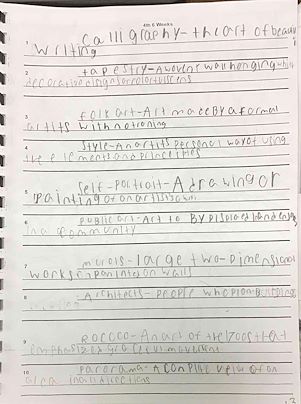 4th 6 Weeks
1 Calligraphy-the art of beauty
writing
2 tapestry-A wovene wall henging which
decorative disign or color discens
3 folk art-Art made By a formal
artits with notraning
4 Style-An artits personal way of using
the elements and principles
5 Self-Portrait-A drawing or
Painting of an artist's own
6 public art-Art to By Displaced and easy
in a community
7 murals-large two-Dimensional
works on painting on walls
8 Architects-People who plan Buildings
9 Rococo-An art of the 1700s that
emphasized graceful movement
10 Panorama-A complite veiw of an
area in all directions